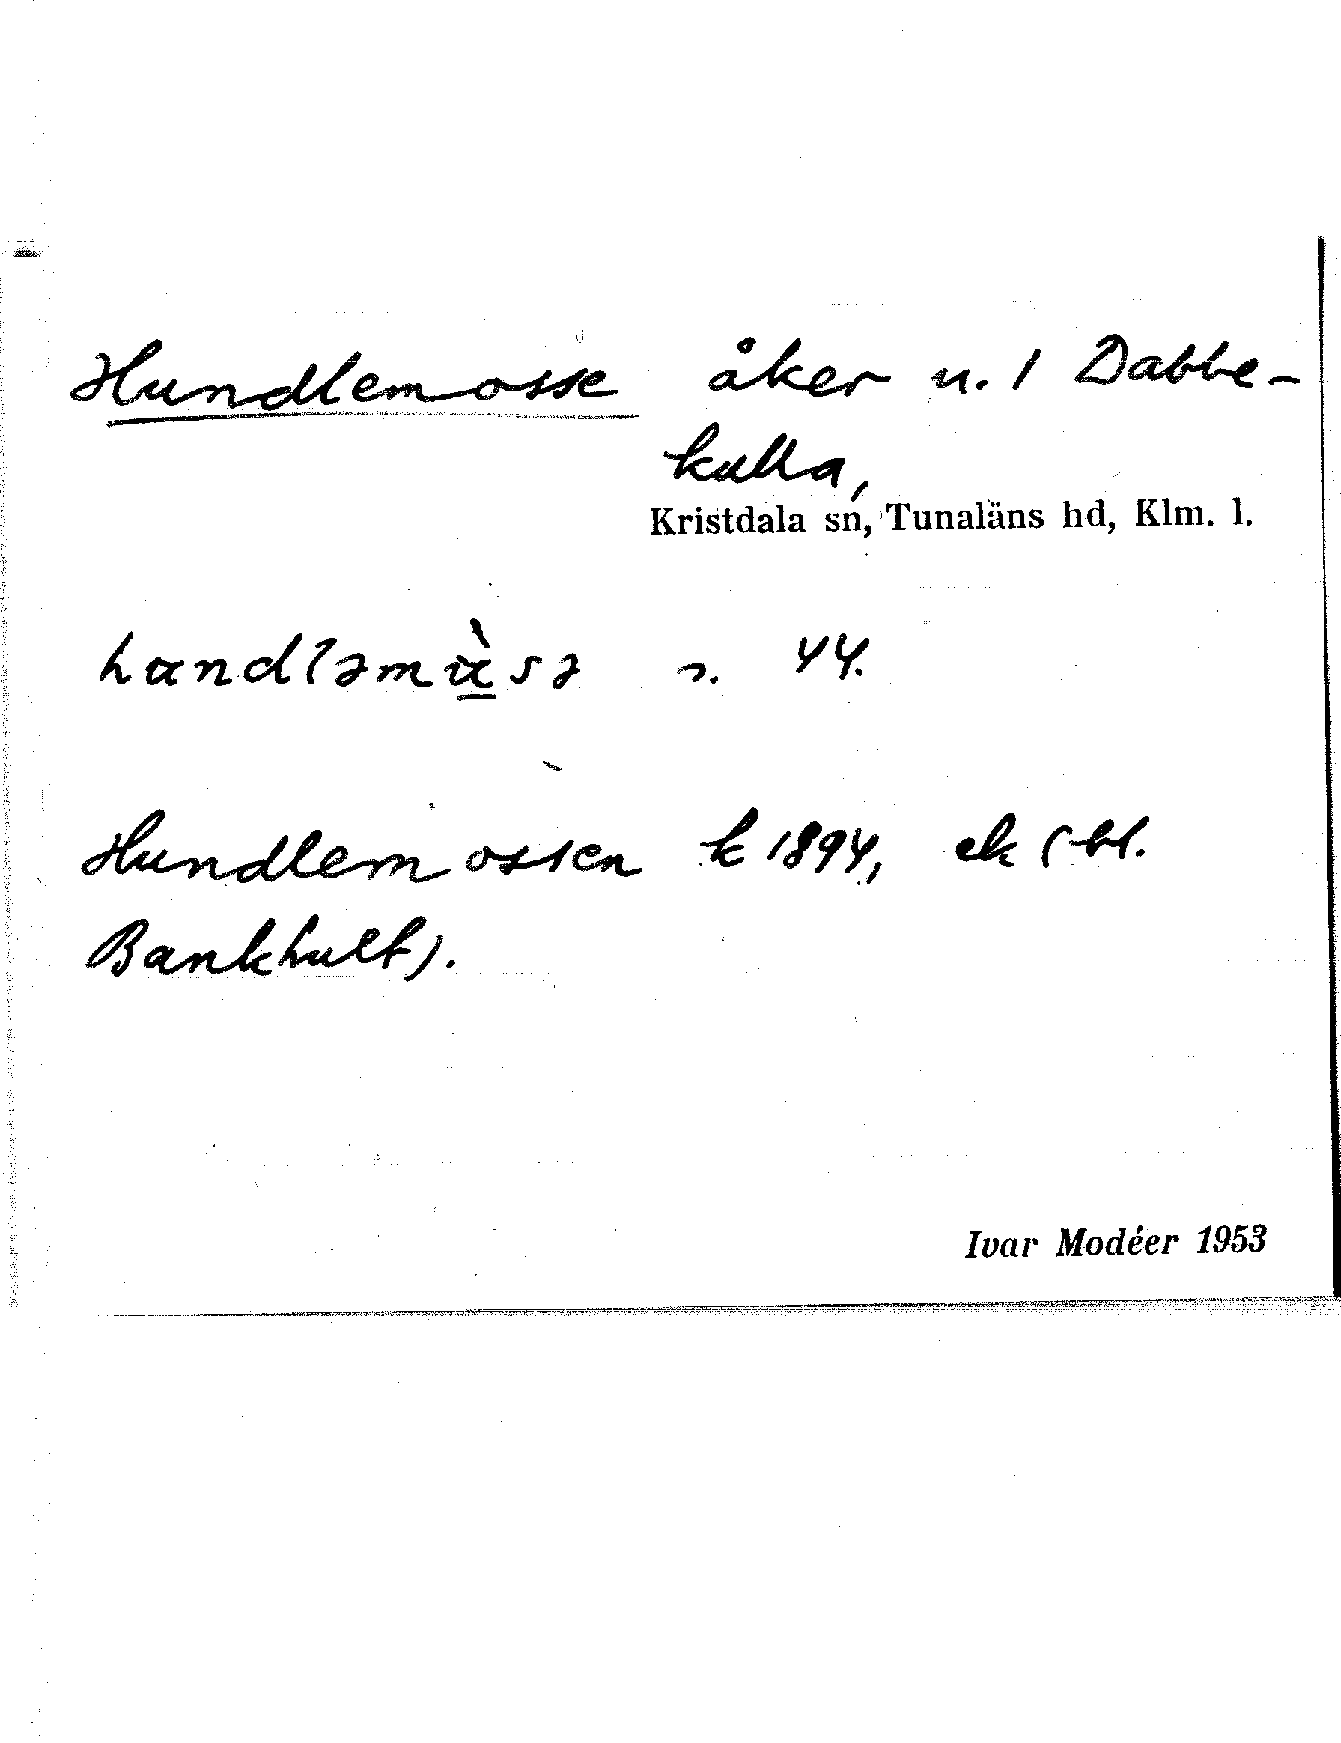 Hundlemosse åker u. 1 Dabbe-
kulla,
Kristdala sn, Tunaläns hd, Klm. l.
44.
Hundlemossen k 1894, ek (bl.
Bankhult).
Ivar Modéer 1953